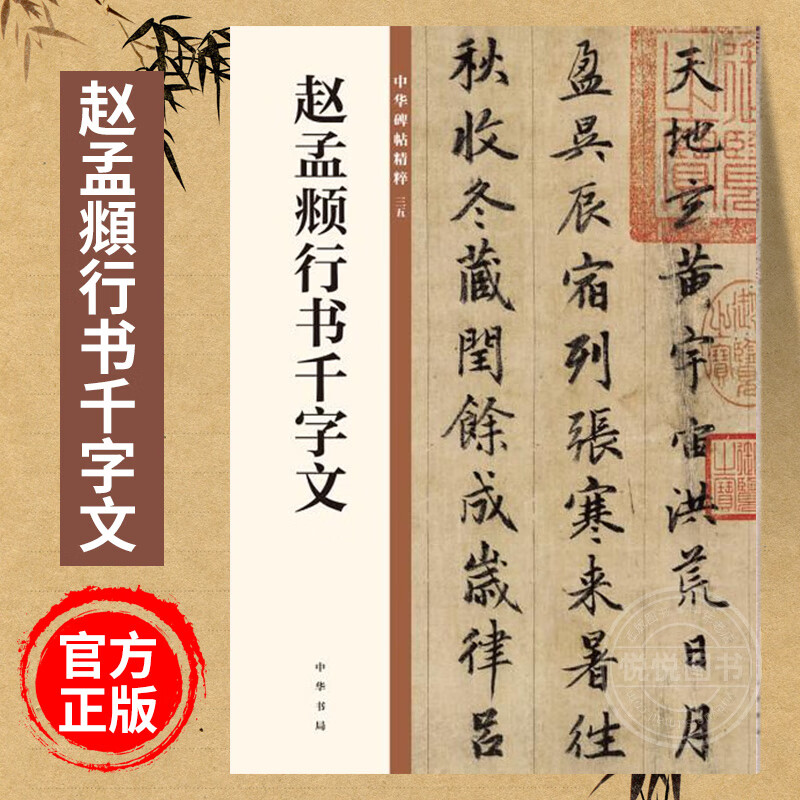 赵孟頫行书千字文
官方
正版
赵孟頫行书千字文
中华书局
中华碑帖精粹 三五
天地玄黄宇宙洪荒日月
盈昃辰宿列張寒来暑往
秋收冬藏閏餘成歲律吕
悦悦图书